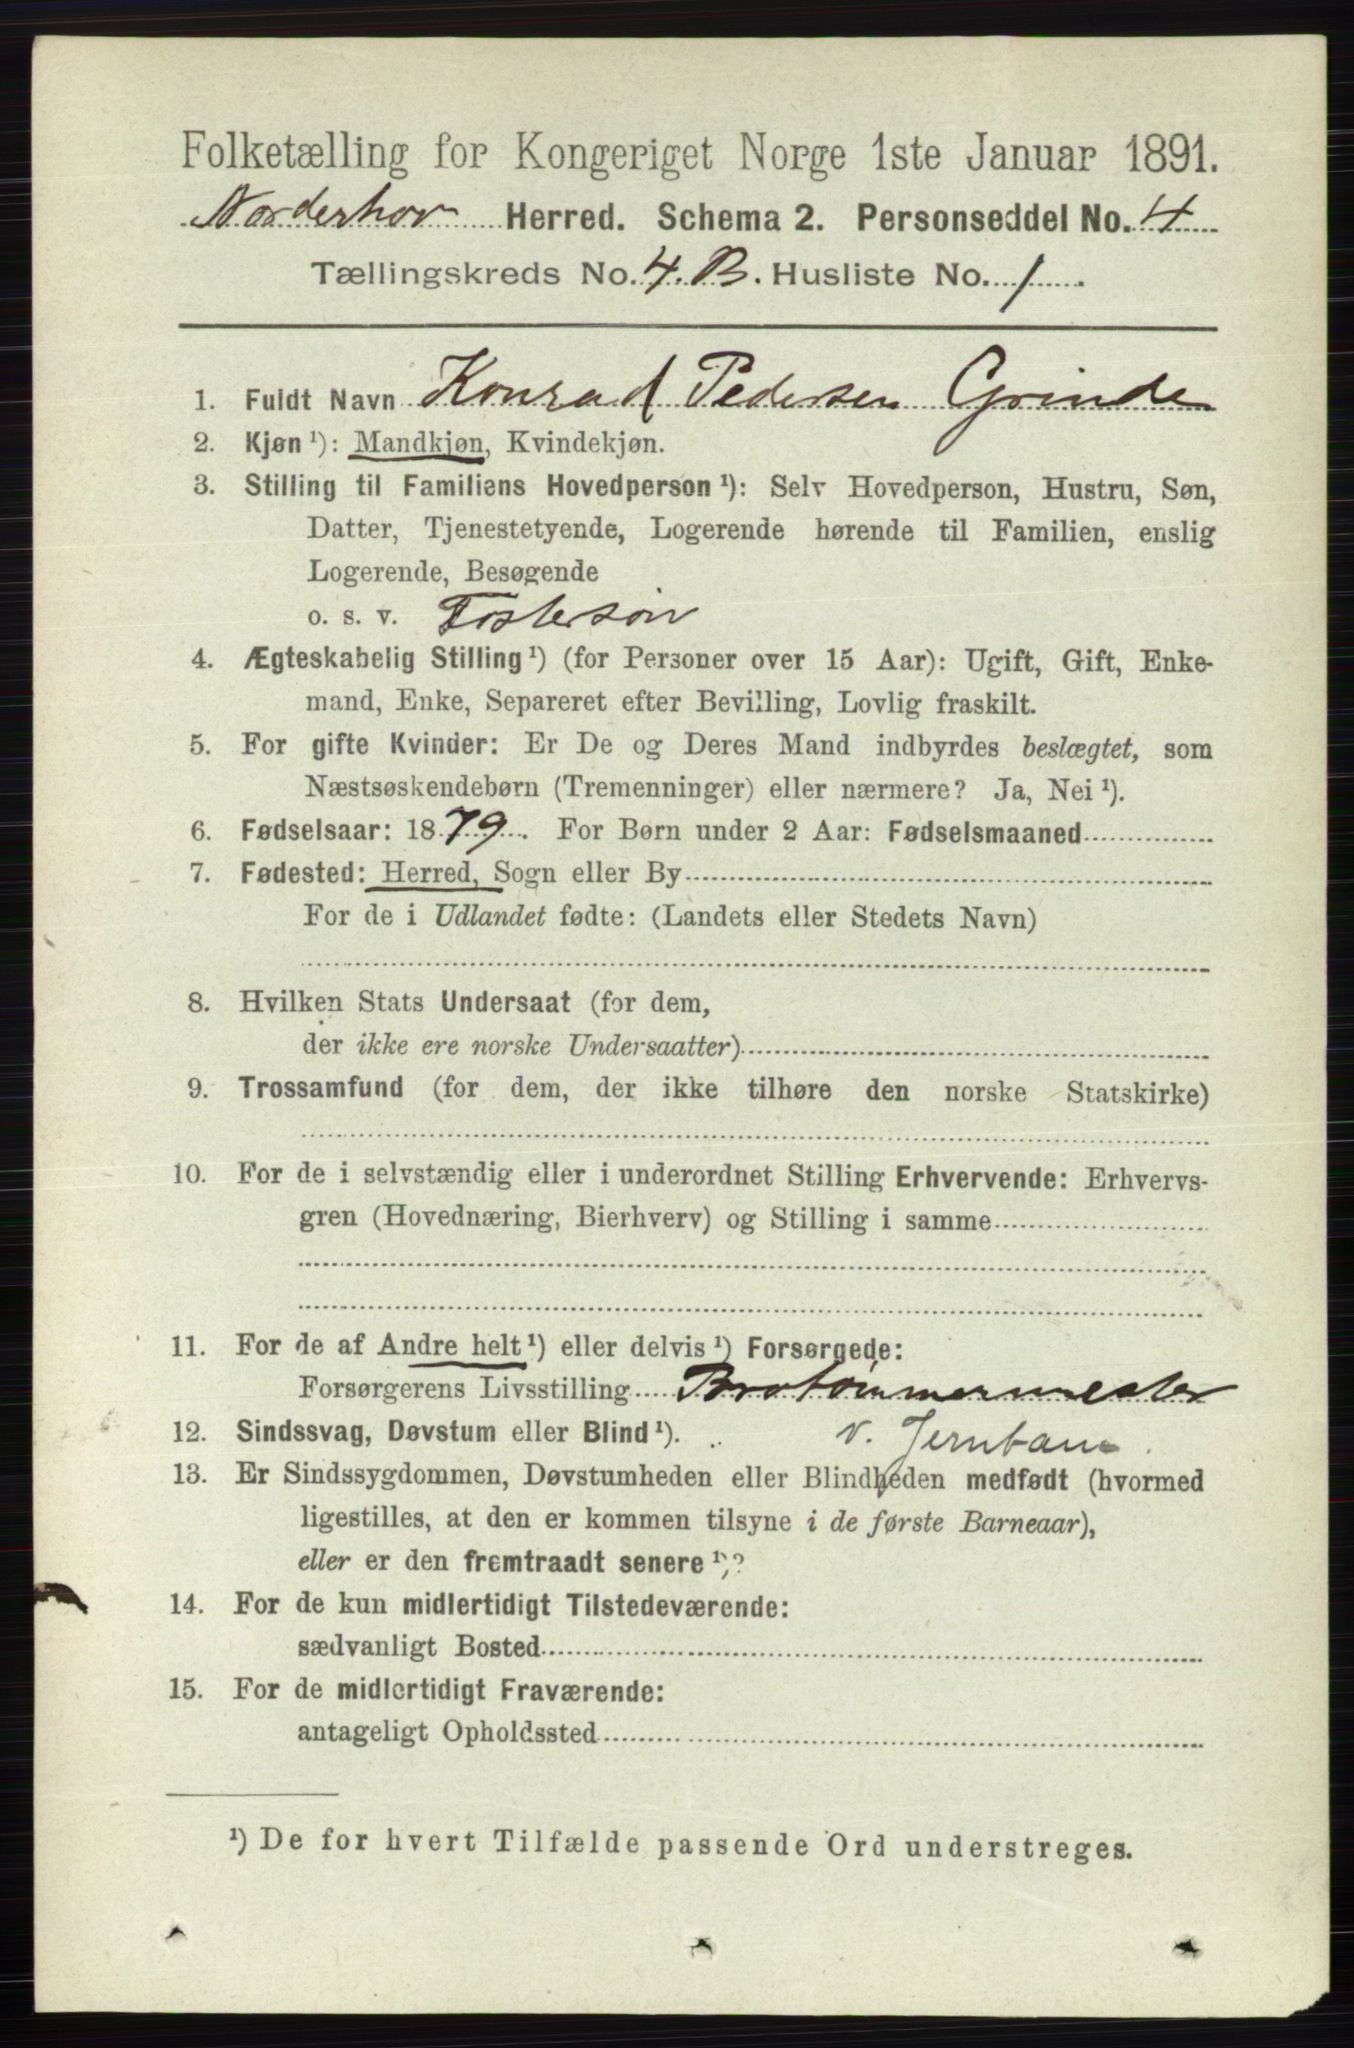 Folketælling for Kongeriget Norge 1ste Januar 1891.
Norderhov Herred. Schema 2. Personseddel No. 4
Tællingskreds No. 4. B. Husliste No. 1.
1. Fuldt Navn Konrad Pedersen Grinde
2. Kjøn ¹): Mandkjøn, Kvindekjøn.
3. Stilling til Familiens Hovedperson ¹): Selv Hovedperson, Hustru, Søn,
Datter, Tjenestetyende, Logerende hørende til Familien, enslig
Logerende, Besøgende
o. s. v. Fostersøn
4. Ægteskabelig Stilling ¹) (for Personer over 15 Aar): Ugift, Gift, Enke-
mand, Enke, Separeret efter Bevilling, Lovlig fraskilt.
5. For gifte Kvinder: Er De og Deres Mand indbyrdes beslægtet, som
Næstsøskendebørn (Tremenninger) eller nærmere? Ja, Nei ¹).
6. Fødselsaar: 1879. For Børn under 2 Aar: Fødselsmaaned
7. Fødested: Herred, Sogn eller By
For de i Udlandet fødte: (Landets eller Stedets Navn)
8. Hvilken Stats Undersaat (for dem,
der ikke ere norske Undersaatter)
9. Trossamfund (for dem, der ikke tilhøre den norske Statskirke)
10. For de i selvstændig eller i underordnet Stilling Erhvervende: Erhvervs-
gren (Hovednæring, Bierhverv) og Stilling i samme
11. For de af Andre helt ¹) eller delvis ¹) Forsørgede:
Forsørgerens Livsstilling Brotømmermester
12. Sindssvag, Døvstum eller Blind ¹). v. Jernbane
13. Er Sindssygdommen, Døvstumheden eller Blindheden medfødt (hvormed
ligestilles, at den er kommen tilsyne i de første Barneaar),
eller er den fremtraadt senere ¹)?
14. For de kun midlertidigt Tilstedeværende:
sædvanligt Bosted
15. For de midlertidigt Fraværende:
antageligt Opholdssted
¹) De for hvert Tilfælde passende Ord understreges.